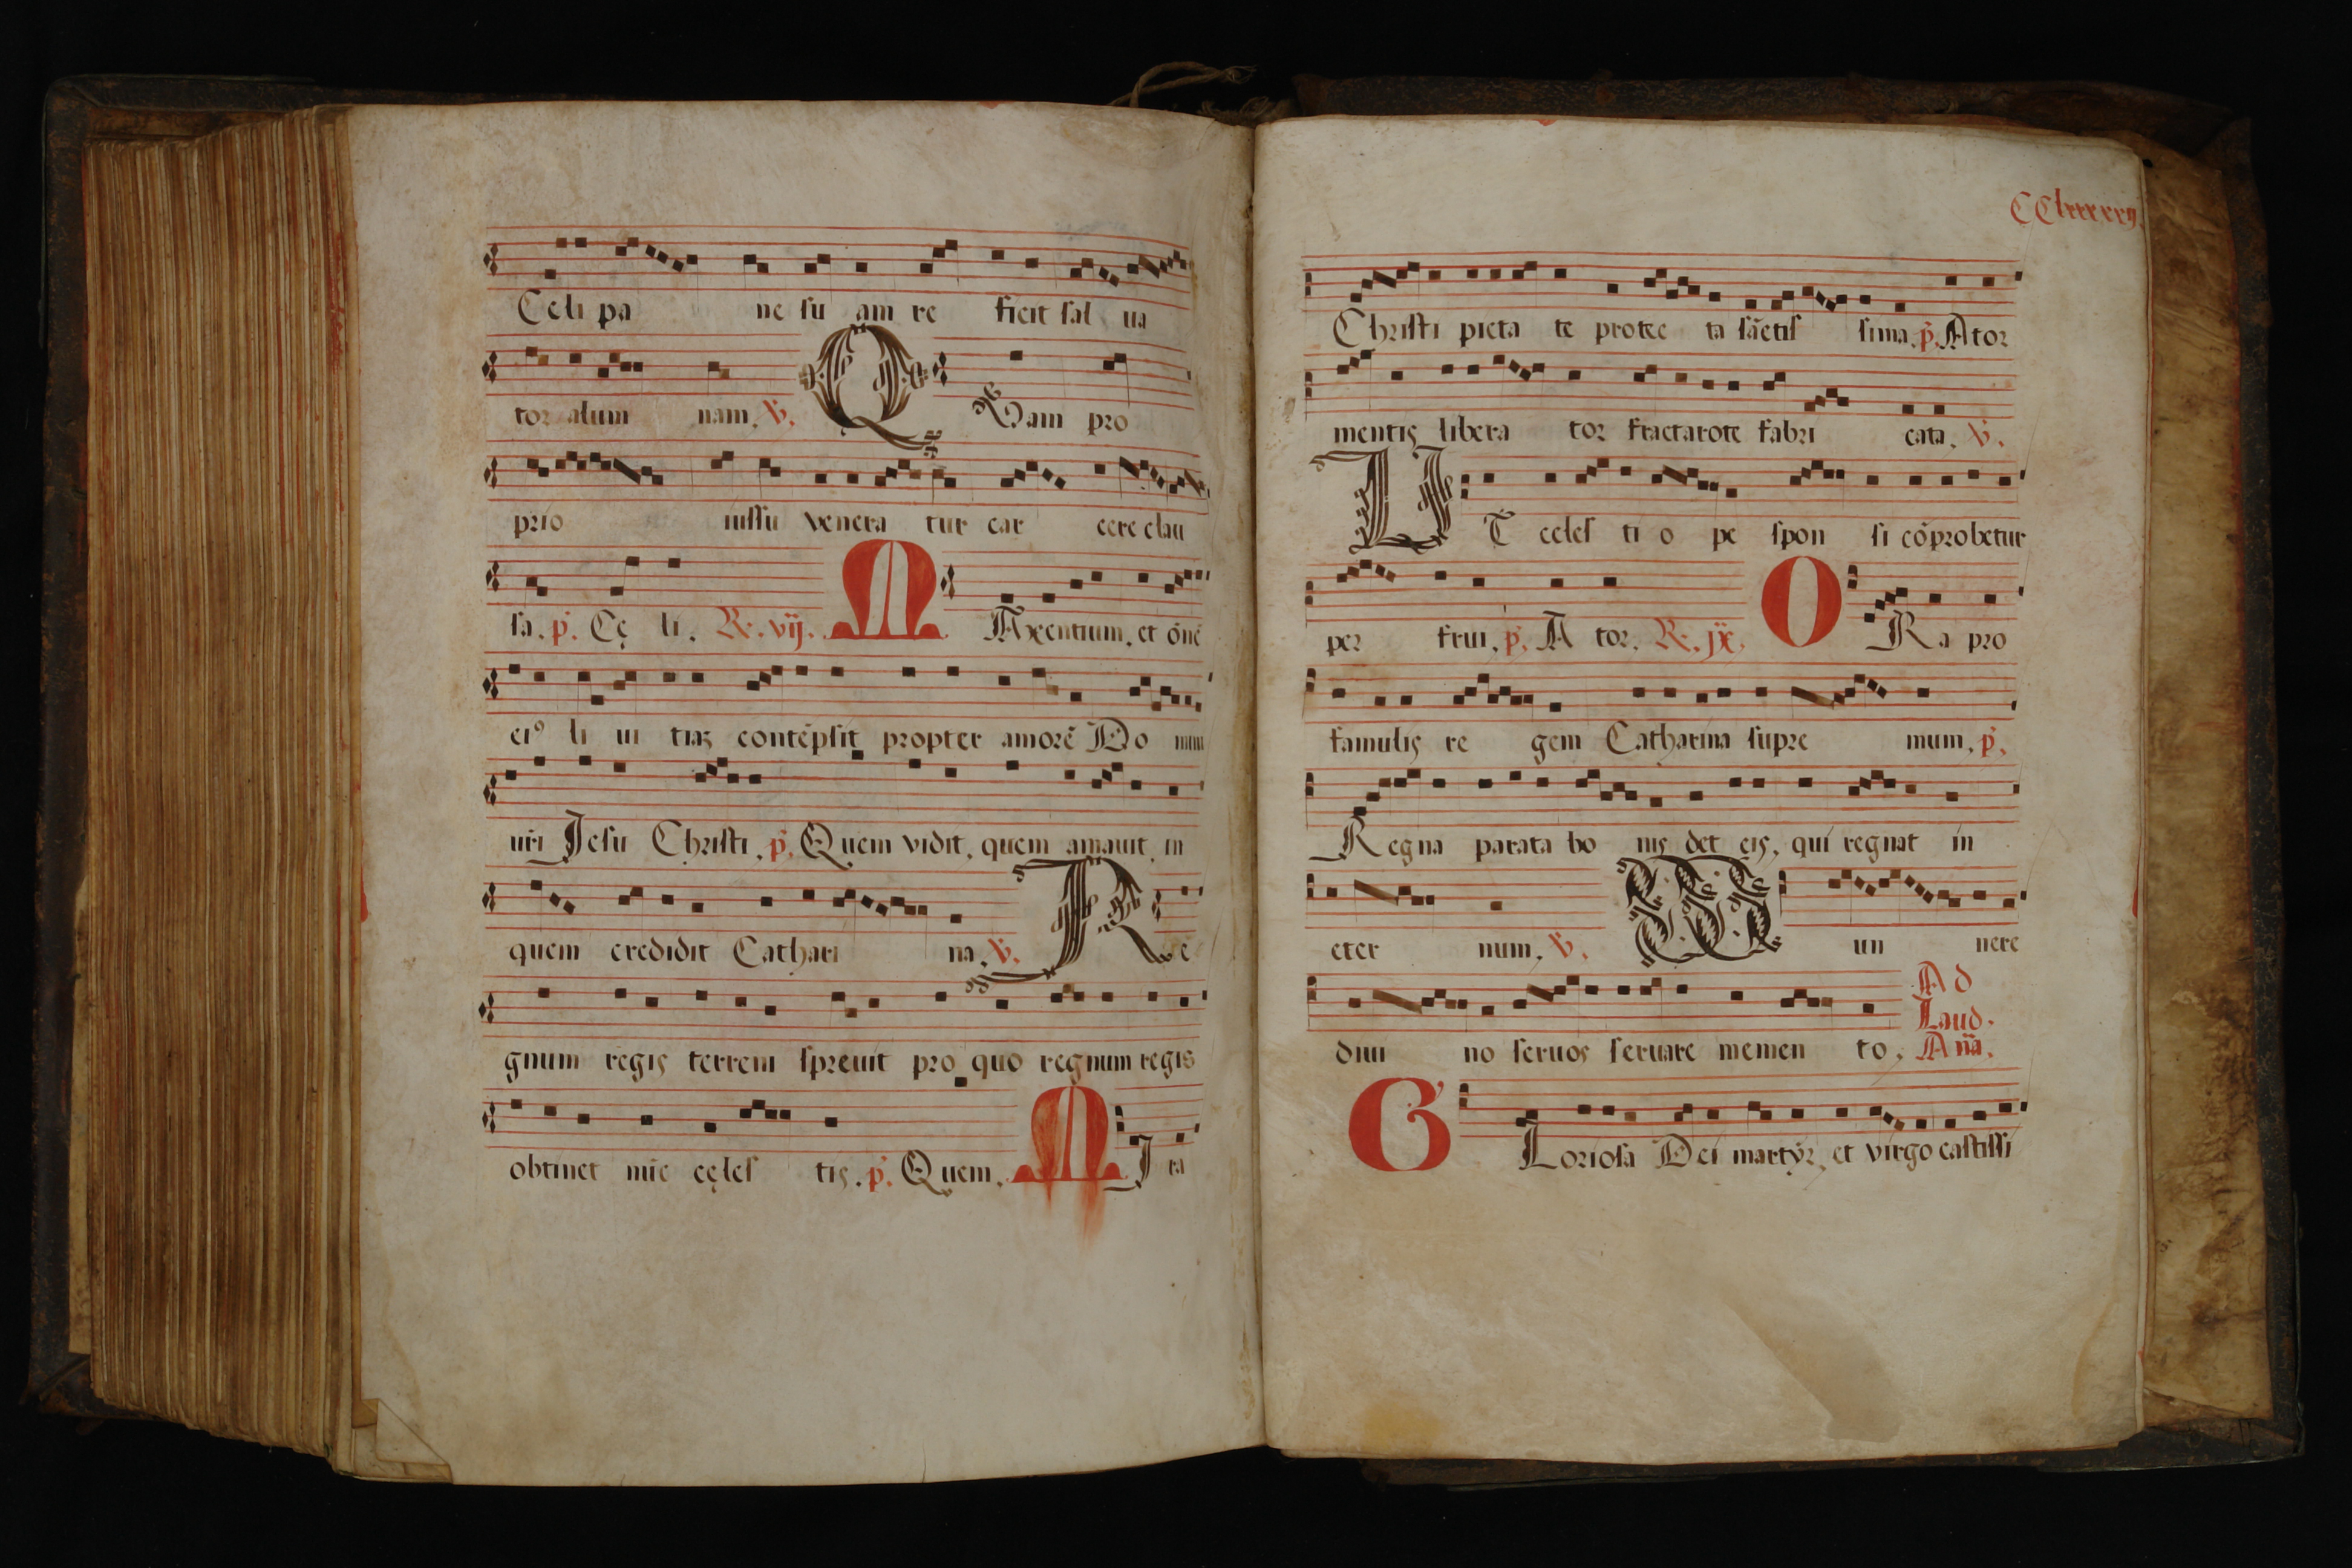 Celi pa ne su am re ficit sal ua
tor alum nam. V. Q
Uam pro
prio iussu venera tur car cere clau
sa. p. Cę li. R. vij. M Axentium. et oñē
ei⁹ li ui tias contēpsit propter amorē Do mini
nr̄i Jesu Christi. p. Quem vidit. quem amauit. in
quem credidit Cathari na. V. Re
gnum regis terreni spreuit pro quo regnum regis
obtinet nūc cęles tis. p. Quem. MI ra
CClxxxxxij.
Christi pieta te protec ta sāctis sima. p. A tor
mentis libera tor fractarote fabri cata. V.
UT celes ti o pe spon si cōprobetur
per frui. p. A tor. R. jx. O Ra pro
famulis re gem Catharina supre mum. p.
Regna parata bo nis det eis. qui regnat in
eter num. V. W un nere
diui no seruos seruare memen to. Ad
Laud.
Aña.
GLoriosa Dei martyr. et virgo castissi